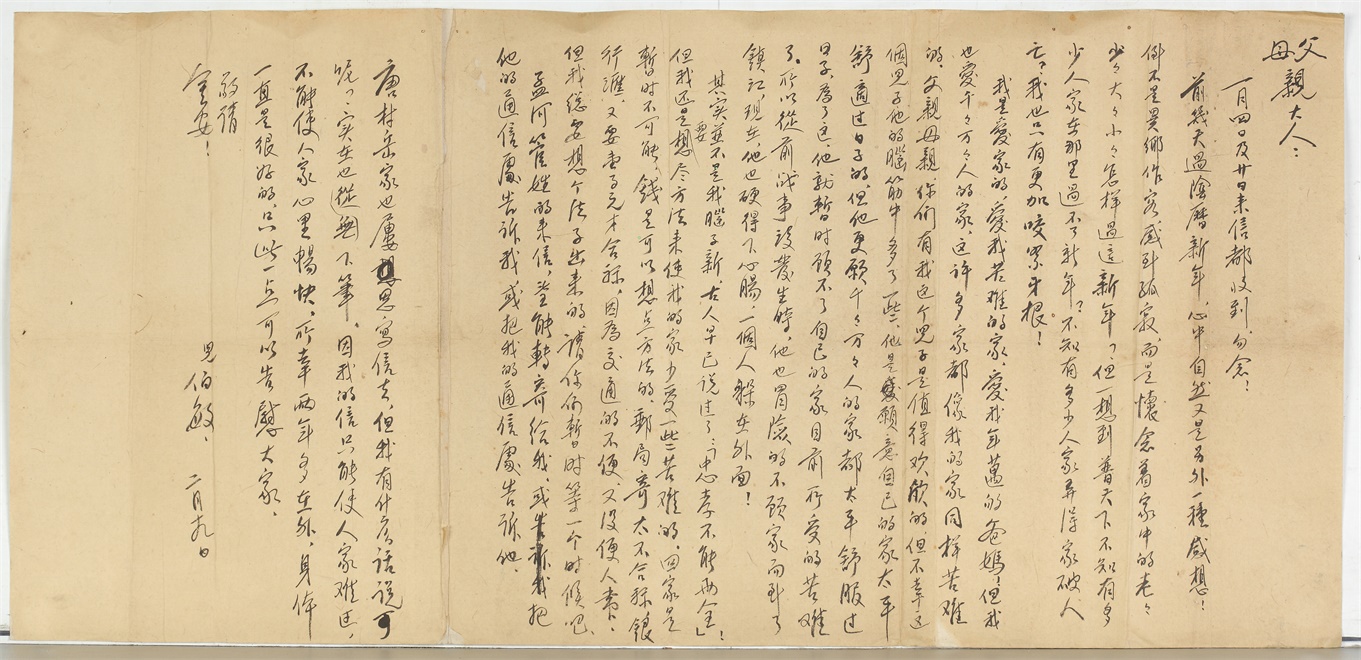 父母親大人：
一月四日及廿日来信都收到，勿念！
前幾天過陰曆新年，心中自然又是另外一種感想！
倒不是異鄉作客感到孤寂，而是懷念着家中的老々
少々大々小々怎樣過這新年？但一想到普天下不知有多
少人家在那里過不了新年？不知有多少人家弄得家破人
亡？我也只有更加咬緊牙根！
我是愛家的，愛我苦难的家，愛我年邁的爸媽！但我
也愛千々万々人的家，这許多家都像我的家同样苦难
的。父親母親，你們有我这个兒子是值得欢欣的，但不幸这
個兒子他的腦筋中多了一些，他是願意自己的家太平
舒適过日子的，但他更願千々万々人的家都太平舒服过
日子，為了这，他就暫时顾不了自己的家目前所受的苦难
了。所以從前战事設發生時，他也冒險的不顾家而到了
鎮江，現在，他也硬得下心腸，一個人躲在外面！
其实並不是我腦子新，古人早已說过了：「忠孝不能两全」！
但我还是想要尽方法来使我的家少受一些苦难的，回家是
暫时不可能，錢是可以想点方法的，郵局寄太不合称，銀
行滙，又要壹百元才合称，因為交通的不便，又没便人带，
但我总要想个法子出来的，請你們暫时等一个时候吧。
孟河管姓的来信，望能轉寄给我，或把
他的通信處告訴我或把我的通信處告訴他。
唐村岳家也屢思寫信去，但我有什么話說可
呢？实在也從無下筆，因我的信只能使人家难过，
不能使人家心里暢快，所幸两年多在外，身体
一直是很好的，只此一点可以告慰大家。
敬請
金安！
兒伯敏，二月九日